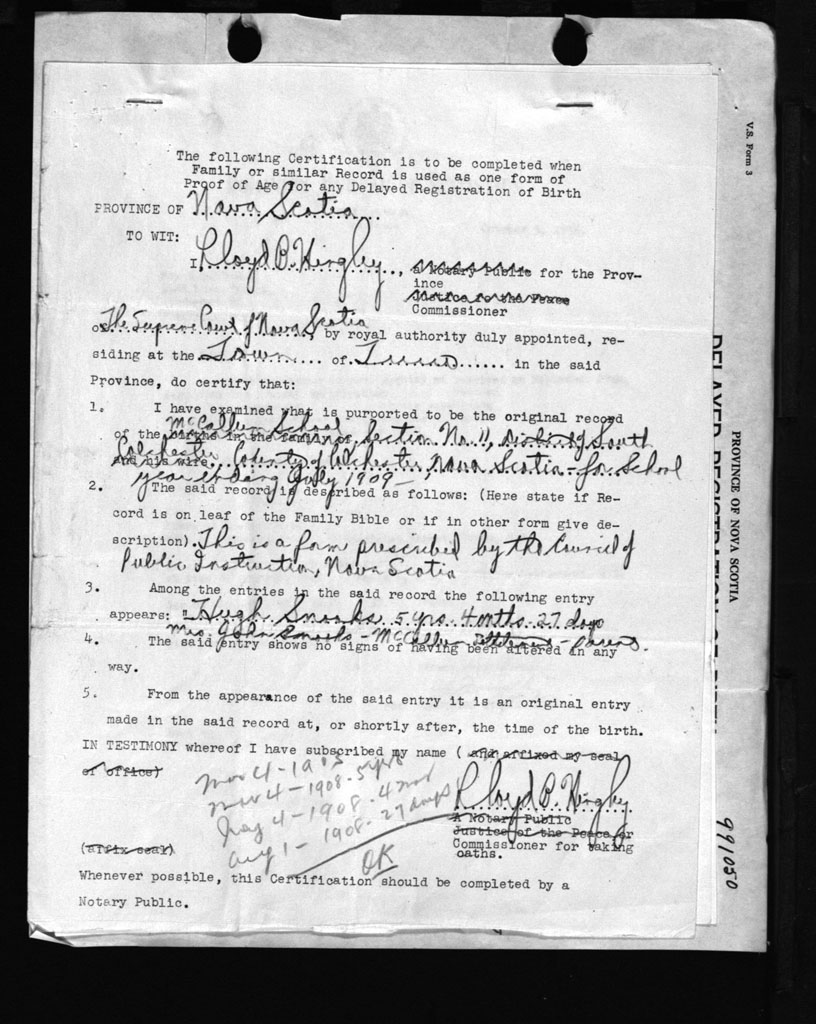 V.S. Form 3
The following Certification is to be completed when
Family or similar Record is used as one form of
Proof of Age for any Delayed Registration of Birth
PROVINCE OF Nova Scotia
TO WIT:
I, Lloyd B. Hingley, a Notary Public for the Prov-
ince
Justice for the Peace
Commissioner
of The Supreme Court of Nova Scotia, by royal authority duly appointed, re-
siding at the Town of Truro in the said
Province, do certify that:
1. I have examined what is purported to be the original record
McCallum School
of the births in the family of Section No. 11, District of South
and his wife Colchester, County of Colchester, Nova Scotia - for School
year ending July 1909 -
2. The said record is described as follows: (Here state if Re-
cord is on leaf of the Family Bible or if in other form give de-
scription). This is a form prescribed by the Council of
Public Instruction, Nova Scotia
3. Among the entries in the said record the following entry
appears: "Hugh Snooks 5 yrs. 4 mths. 27 days
Mrs. John Snooks - McCallum - Parent.
4. The said entry shows no signs of having been altered in any
way.
5. From the appearance of the said entry it is an original entry
made in the said record at, or shortly after, the time of the birth.
IN TESTIMONY whereof I have subscribed my name ( and affixed my seal
of office)
Mar 4 - 1903
Mar 4 - 1908 - 5 yrs
July 4 - 1908 - 4 mos
Aug 1 - 1908 - 27 days
OK
Lloyd B. Hingley
A Notary Public
Justice of the Peace or
Commissioner for taking
oaths.
(affix seal)
Whenever possible, this Certification should be completed by a
Notary Public.
PROVINCE OF NOVA SCOTIA
DELAYED REGISTRATION OF BIRTH
991050